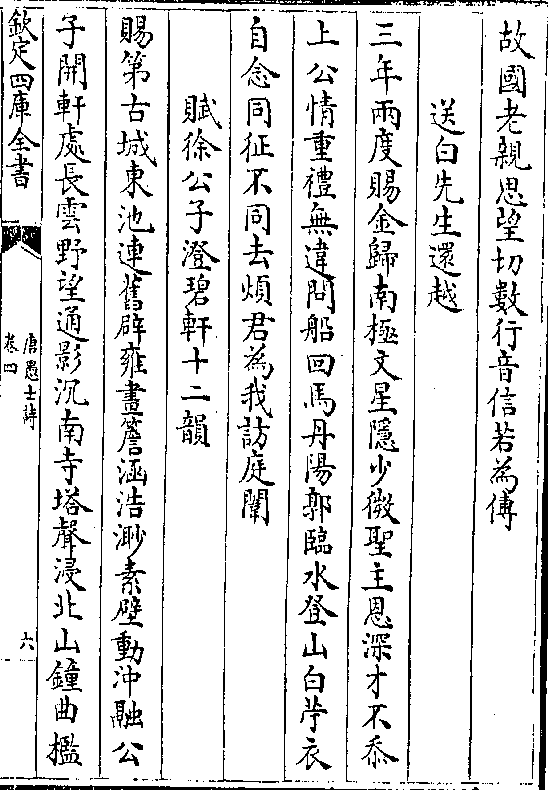 故國老親思望切數行音信若為傳
送白先生還越
三年兩度賜金歸南極文星隱少微聖主恩深才不忝
上公情重禮無違問船回馬丹陽郭臨水登山白苧衣
自念同征不同去煩君為我訪庭闈
賦徐公子澄碧軒十二韻
賜第古城東池連舊辟雍畫簷涵浩渺素壁動沖融公
子開軒處長雲野望通影沉南寺塔聲浸北山鐘曲檻
欽定四庫全書
唐愚士詩
卷四
六